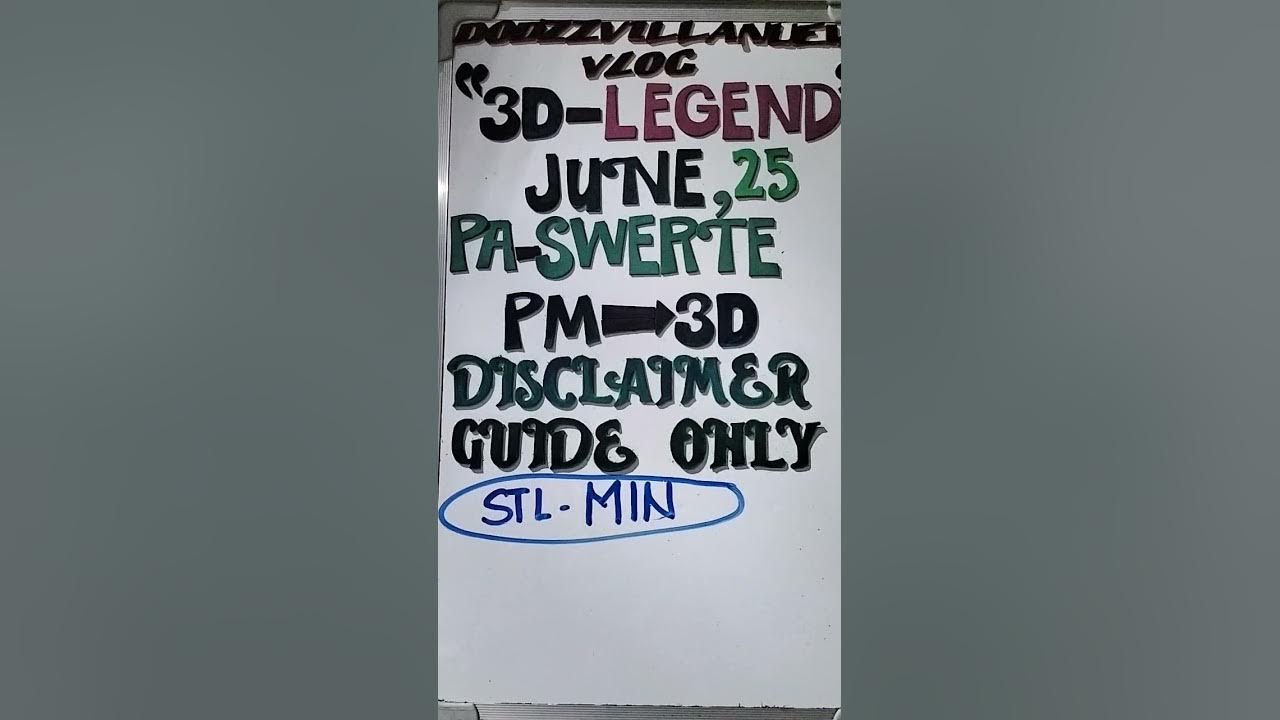 DODZZVILLANUEV
VLOG
"3D-LEGEND"
JUNE, 25
PA-SWERTE
PM➡3D
DISCLAIMER
GUIDE ONLY
STL-MIN